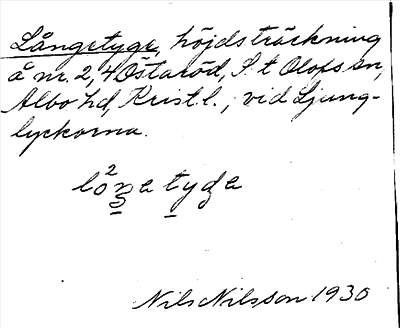 Långetyge, höjdsträckning
å nr. 2, 4 Östaröd, S:t Olofs sn,
Albo hd, Krist. l., vid Ljung-
lyckorna.
lo²ŋa tyga
Nils Nilsson 1930